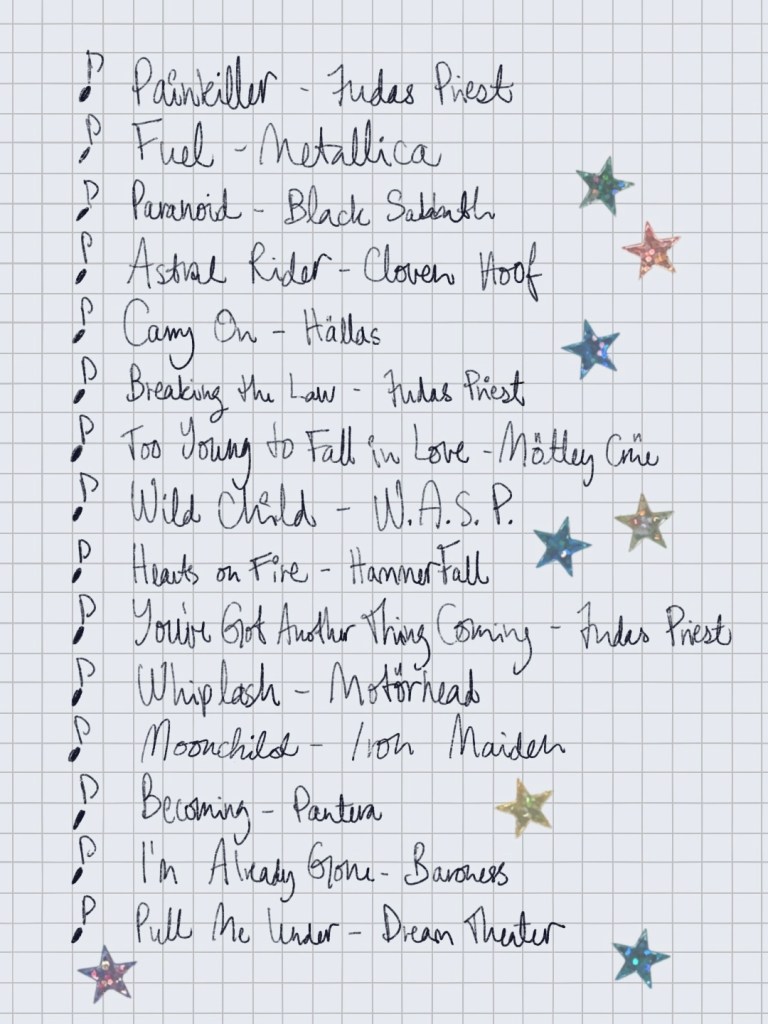 Painkiller - Judas Priest
Fuel - Metallica
Paranoid - Black Sabbath
Astral Rider - Cloven Hoof
Carry On - Hällas
Breaking the Law - Judas Priest
Too Young to Fall in Love - Mötley Crüe
Wild Child - W.A.S.P.
Hearts on Fire - HammerFall
You've Got Another Thing Coming - Judas Priest
Whiplash - Motörhead
Moonchild - Iron Maiden
Becoming - Pantera
I'm Already Gone - Baroness
Pull Me Under - Dream Theater